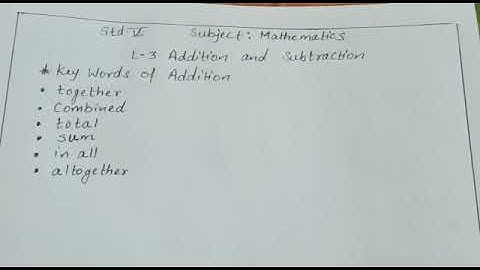 Std VI Subject: Mathematics
L-3 Addition and Subtraction
* Key Words of Addition
• together
• Combined
• total
• sum
• in all
• altogether